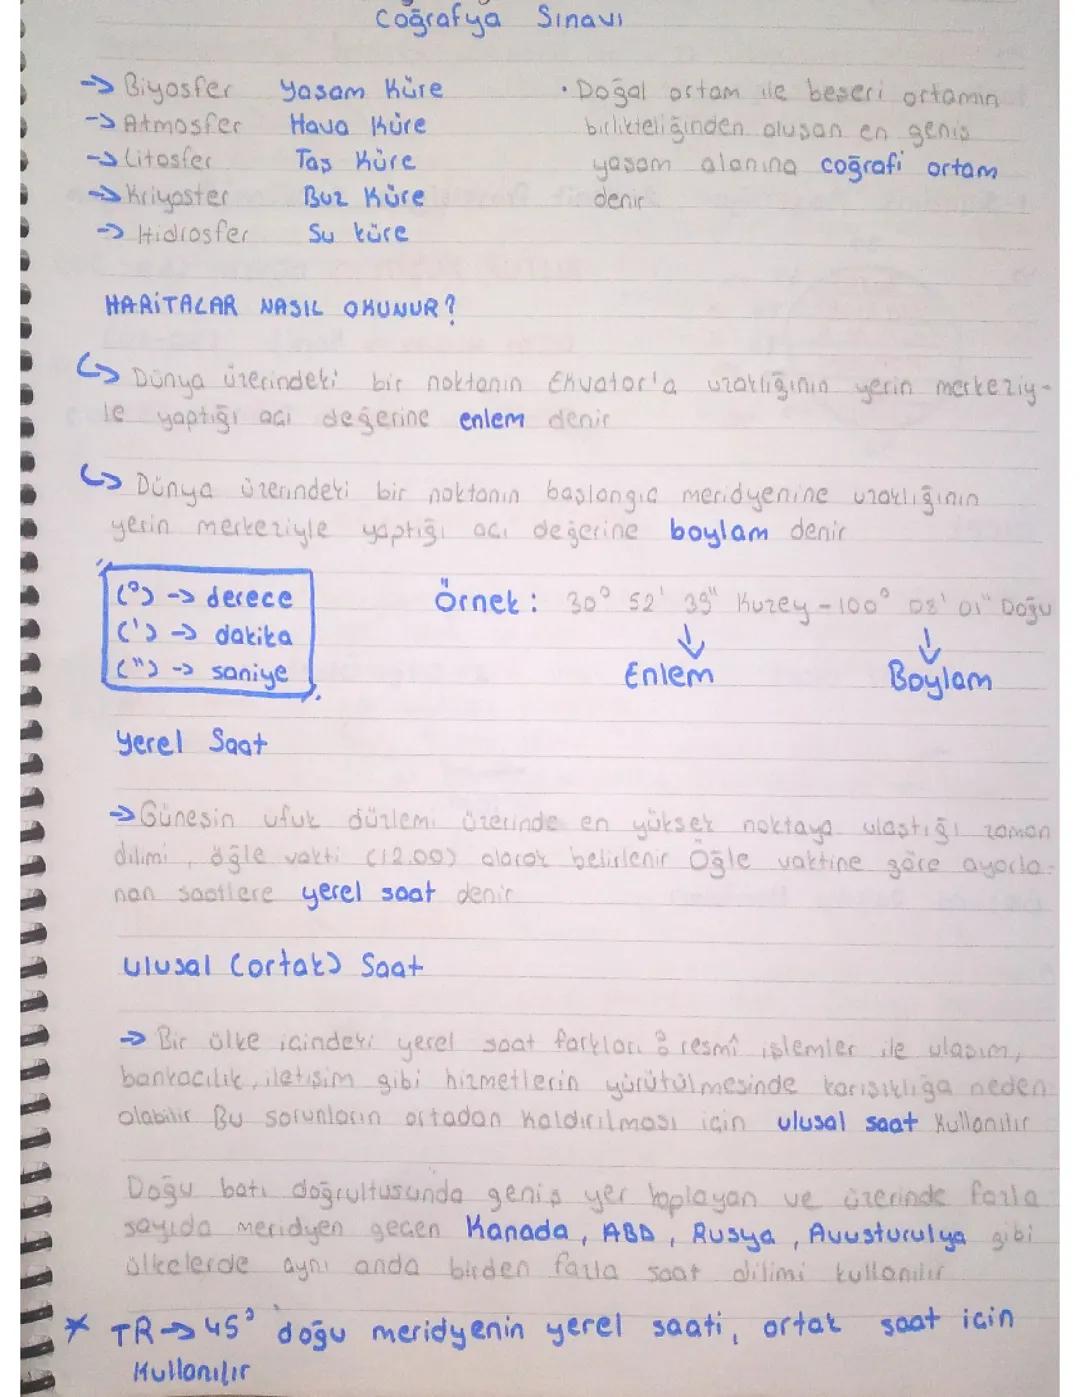 Coğrafya Sınavı
-> Biyosfer Yaşam Küre
-> Atmosfer Hava Küre
-> Litosfer Taş Küre
-> Kriyosfer Buz Küre
-> Hidrosfer Su küre
• Doğal ortam ile beşeri ortamın
birlikteliğinden oluşan en geniş
yaşam alanına coğrafi ortam
denir
HARİTALAR NASIL OKUNUR?
↪ Dünya üzerindeki bir noktanın Ekvator'a uzaklığının yerin merkeziy-
le yaptığı açı değerine enlem denir
↪ Dünya üzerindeki bir noktanın başlangıç meridyenine uzaklığının
yerin merkeziyle yaptığı açı değerine boylam denir
(°) -> derece
(') -> dakika
(") -> saniye
Örnek: 30° 52' 35" Kuzey - 100° 08' 01" Doğu
Enlem Boylam
Yerel Saat
-> Güneşin ufuk düzlemi üzerinde en yüksek noktaya ulaştığı zaman
dilimi, öğle vakti (12.00) olarak belirlenir Öğle vaktine göre ayarla-
nan saatlere yerel saat denir
Ulusal (ortak) Saat
-> Bir ülke içindeki yerel saat farkları : resmî işlemler ile ulaşım,
bankacılık, iletişim gibi hizmetlerin yürütülmesinde karışıklığa neden
olabilir Bu sorunların ortadan kaldırılması için ulusal saat kullanılır
Doğu batı doğrultusunda geniş yer toplayan ve üzerinde fazla
sayıda meridyen geçen Kanada, ABD, Rusya, Avusturulya gibi
ülkelerde aynı anda birden fazla saat dilimi kullanılır
* TR -> 45° doğu meridyenin yerel saati, ortak saat için
Kullanılır